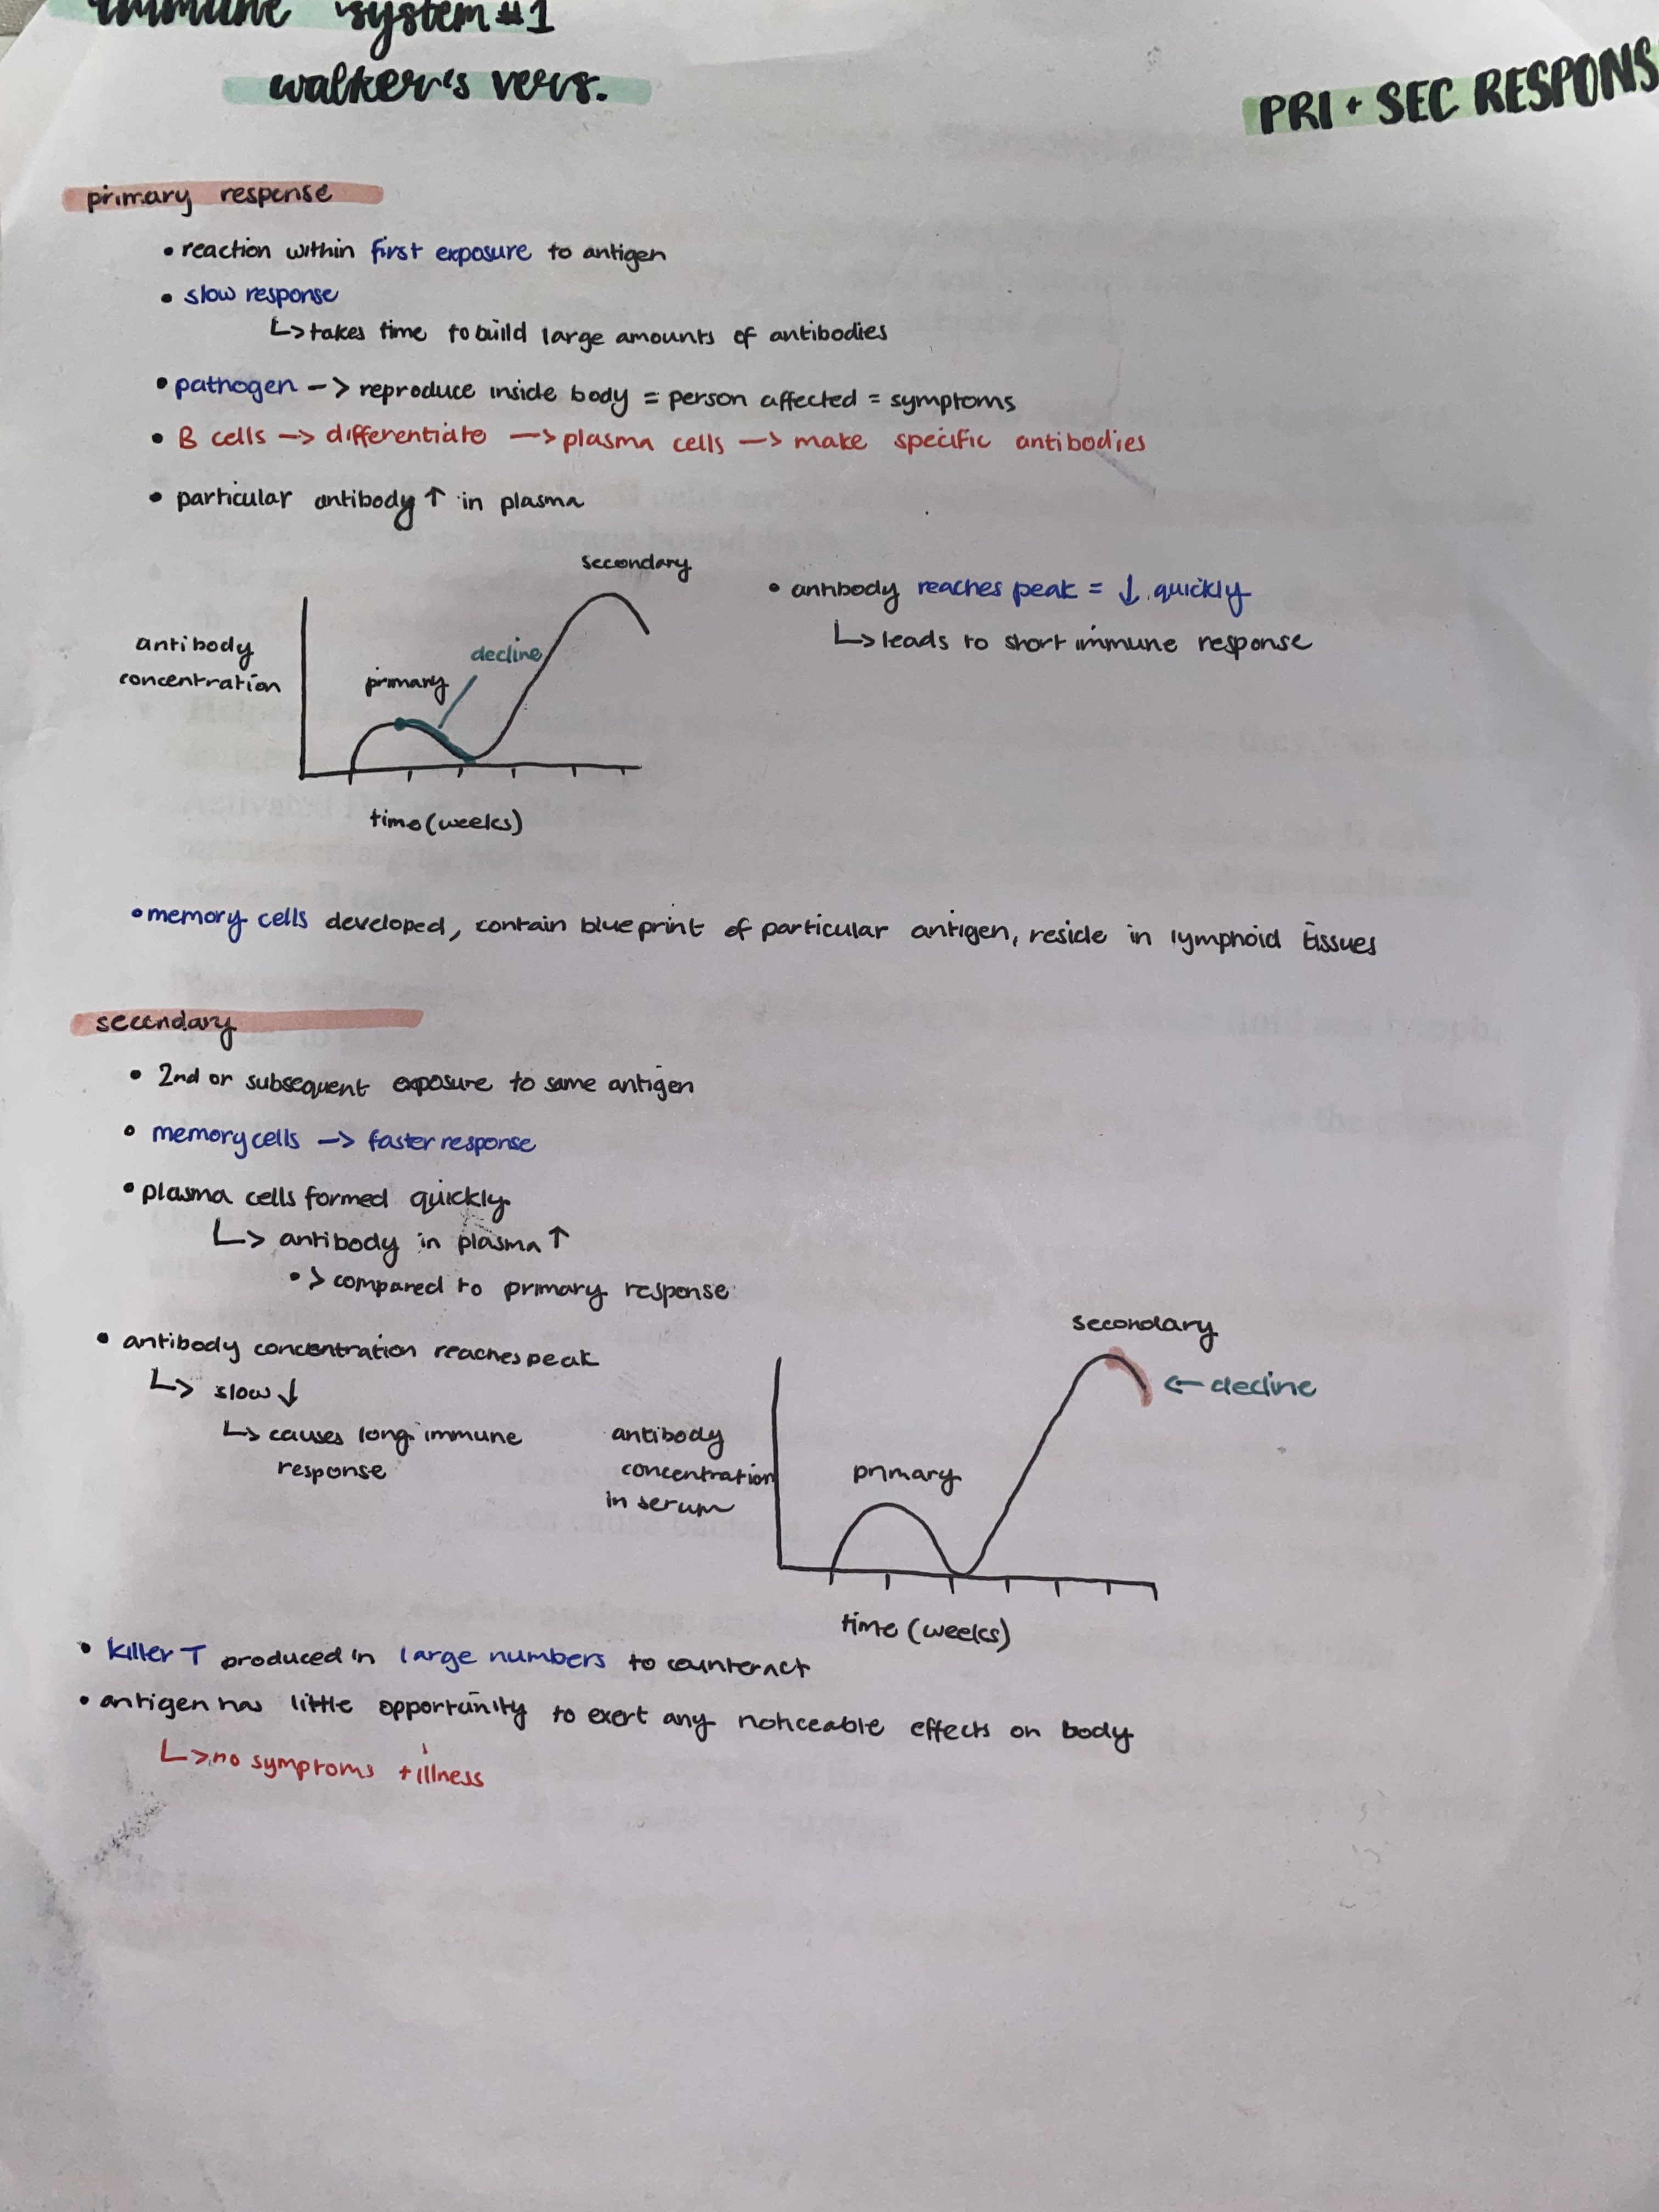 immune system #1
walker's vers.
PRI + SEC RESPONS
primary response
• reaction within first exposure to antigen
• slow response
↳ takes time to build large amounts of antibodies
• pathogen -> reproduce inside body = person affected = symptoms
• B cells -> differentiate -> plasma cells -> make specific antibodies
• particular antibody ↑ in plasma
secondary
• antibody reaches peak = ↓ quickly
↳ leads to short immune response
antibody
concentration
decline
primary
time (weeks)
• memory cells developed, contain blueprint of particular antigen, reside in lymphoid tissues
secondary
• 2nd or subsequent exposure to same antigen
• memory cells -> faster response
• plasma cells formed quickly
↳ antibody in plasma ↑
• > compared to primary response
• antibody concentration reaches peak
↳ slow ↓
↳ causes long immune
response
secondary
<- decline
antibody
concentration
in serum
primary
time (weeks)
• killer T produced in large numbers to counteract
• antigen has little opportunity to exert any noticeable effects on body
↳ no symptoms + illness